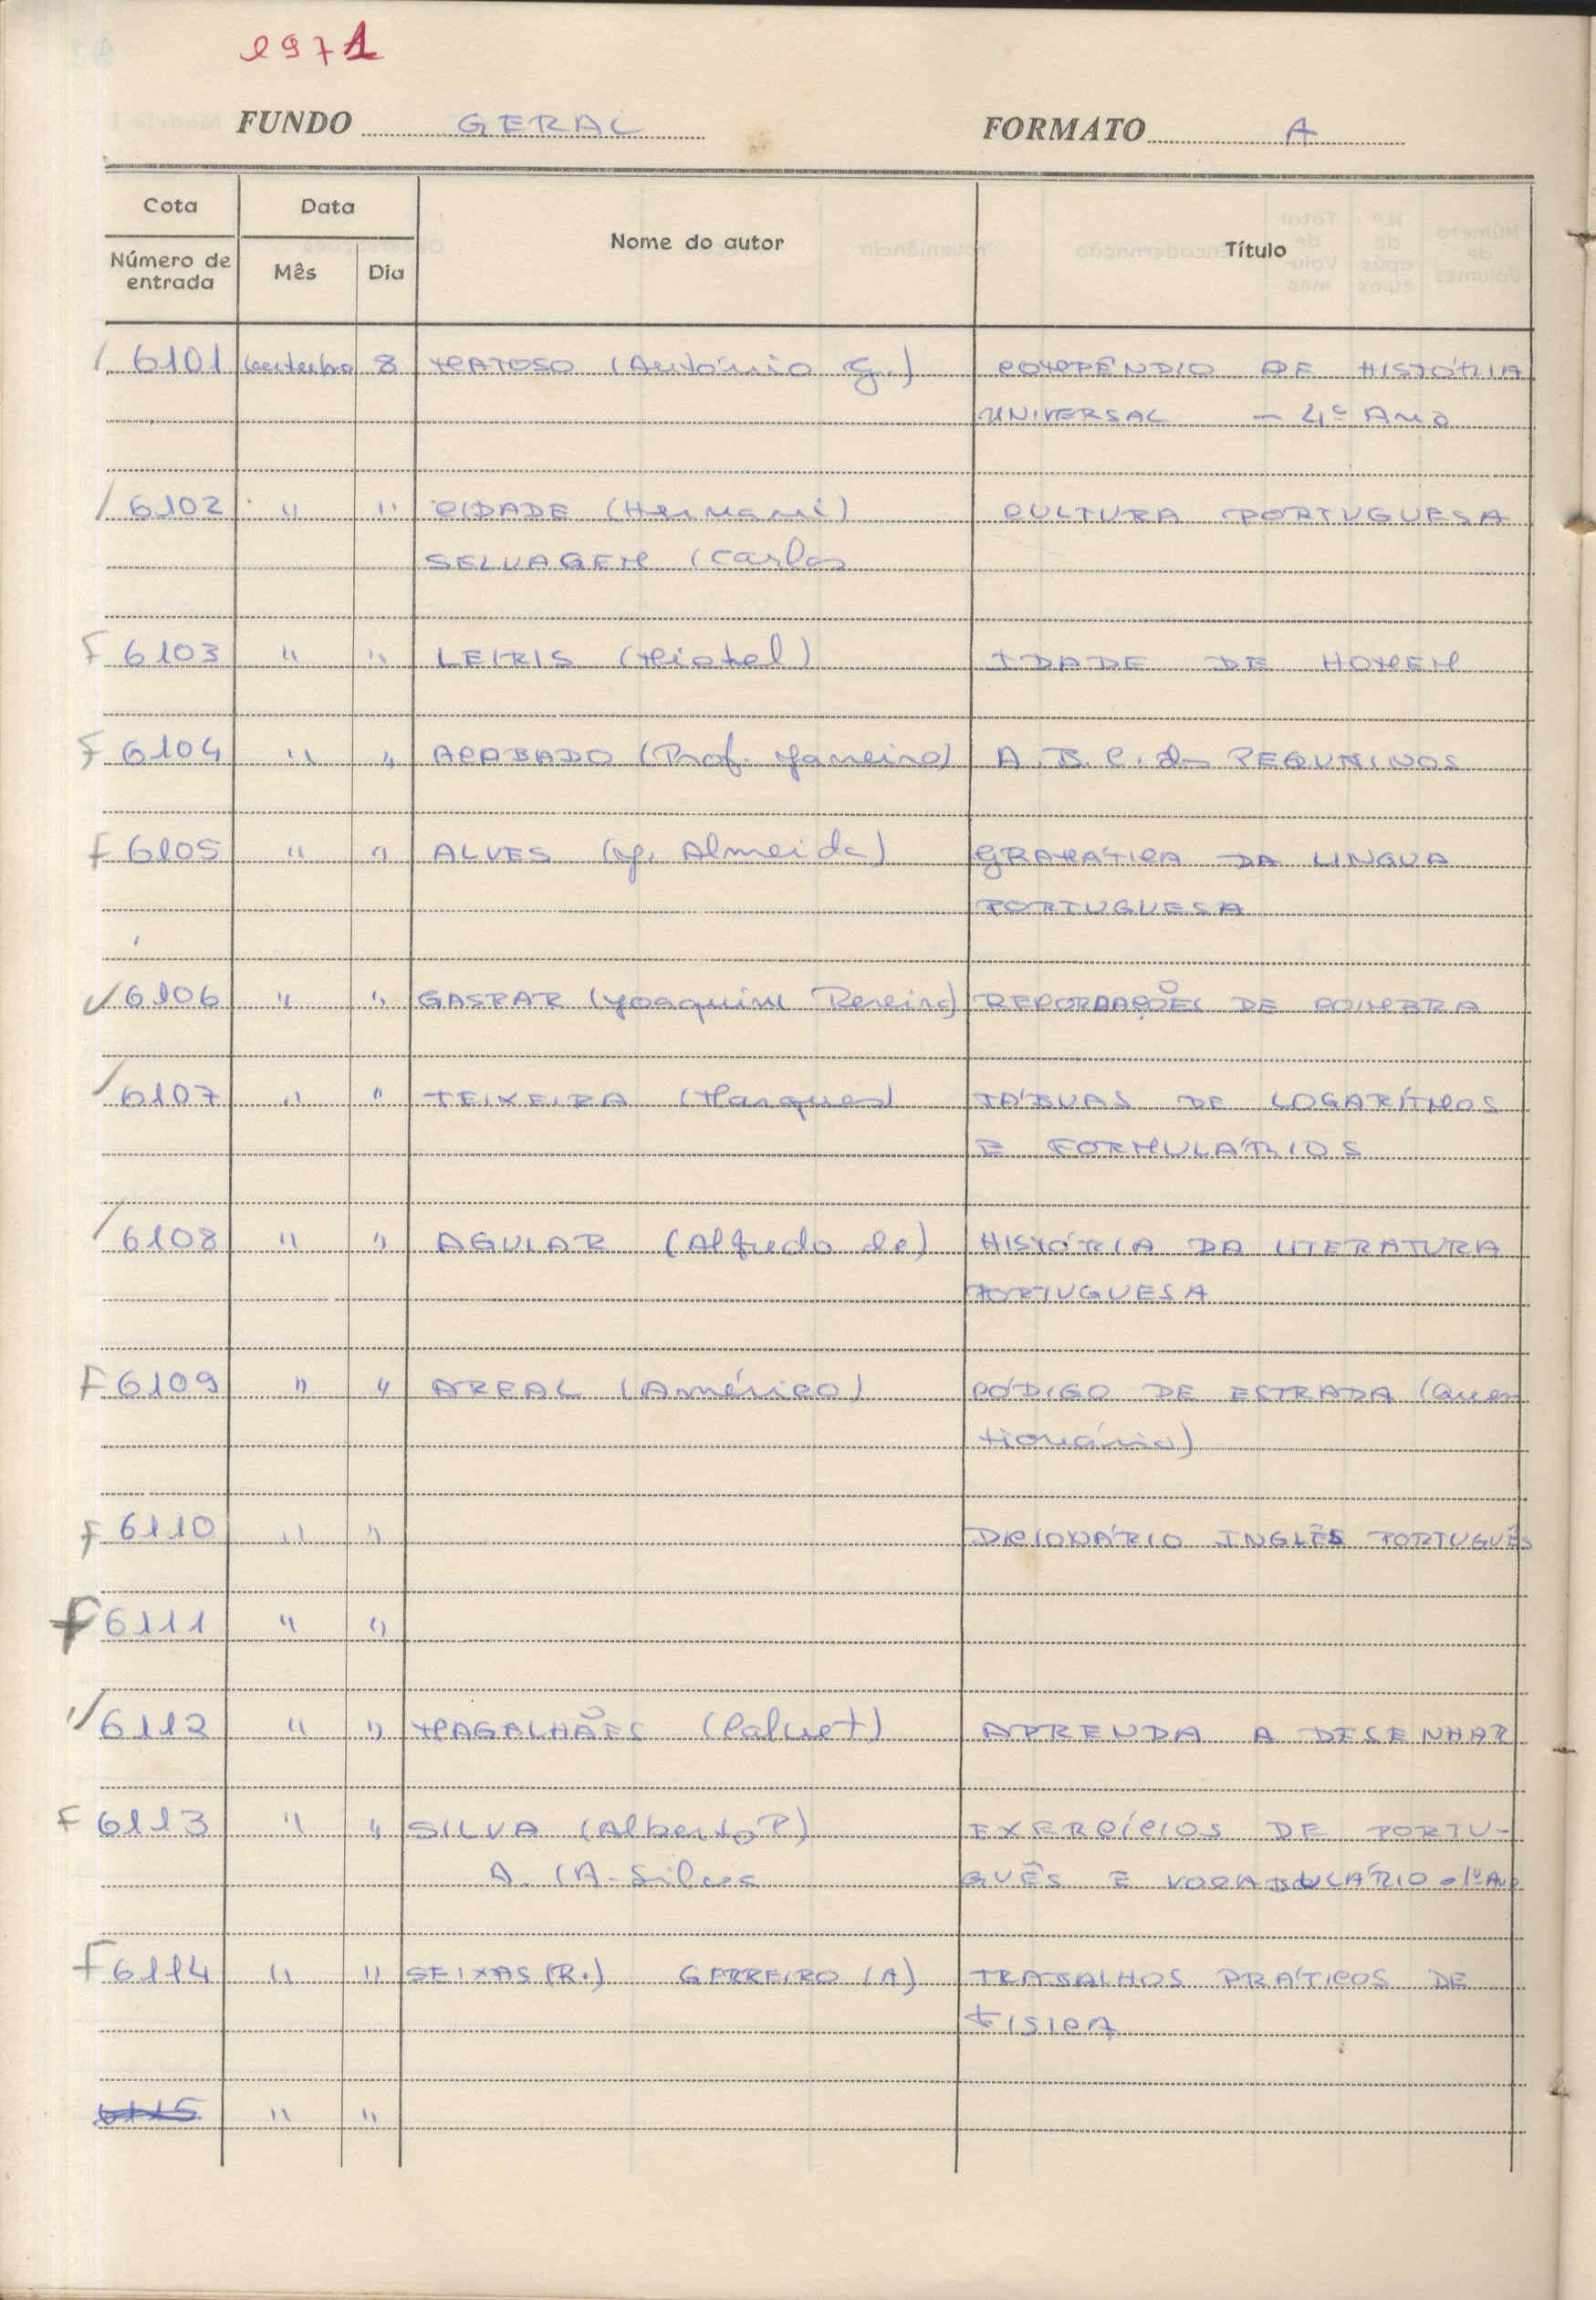 1971
FUNDO GERAL FORMATO A
Cota Data Nome do autor Título
Número de entrada Mês Dia
/ 6101 8 MATOSO (António G.) COMPÊNDIO DE HISTÓRIA
UNIVERSAL - 4º Ano
/ 6102 " " CIDADE (Hernani) CULTURA PORTUGUESA
SELVAGEM (Carlos
F 6103 " " LEIRIS (Michel) IDADE DE HOMEM
F 6104 " " ACABADO (Prof. Janeiro) A. B. C. dos PEQUNINOS
F 6105 " " ALVES (J. Almeida) GRAMÁTICA DA LINGUA
PORTUGUESA
✓ 6106 " " GASPAR (Joaquim Pereira) RECORDAÇÕES DE COIMBRA
/ 6107 " " TEIXEIRA (Marques) TÁBUAS DE LOGARÍTMOS
E FORMULÁRIOS
/ 6108 " " AGUIAR (Alfredo de) HISTÓRIA DA LITERATURA
PORTUGUESA
F 6109 " " AREAL (Américo) CÓDIGO DE ESTRADA (Ques
tionário)
F 6110 " " DICIONÁRIO INGLÊS PORTUGUÊS
F 6111 " "
/ 6112 " " MAGALHÃES (Calvet) APRENDA A DESENHAR
F 6113 " " SILVA (Alberto P) EXERCÍCIOS DE PORTU-
A. (A. Silva GUÊS E VOCABULÁRIO - 1º Ano
F 6114 " " SEIXAS (R.) GERREIRO (A) TRABALHOS PRÁTICOS DE
FISICA
6115 " "